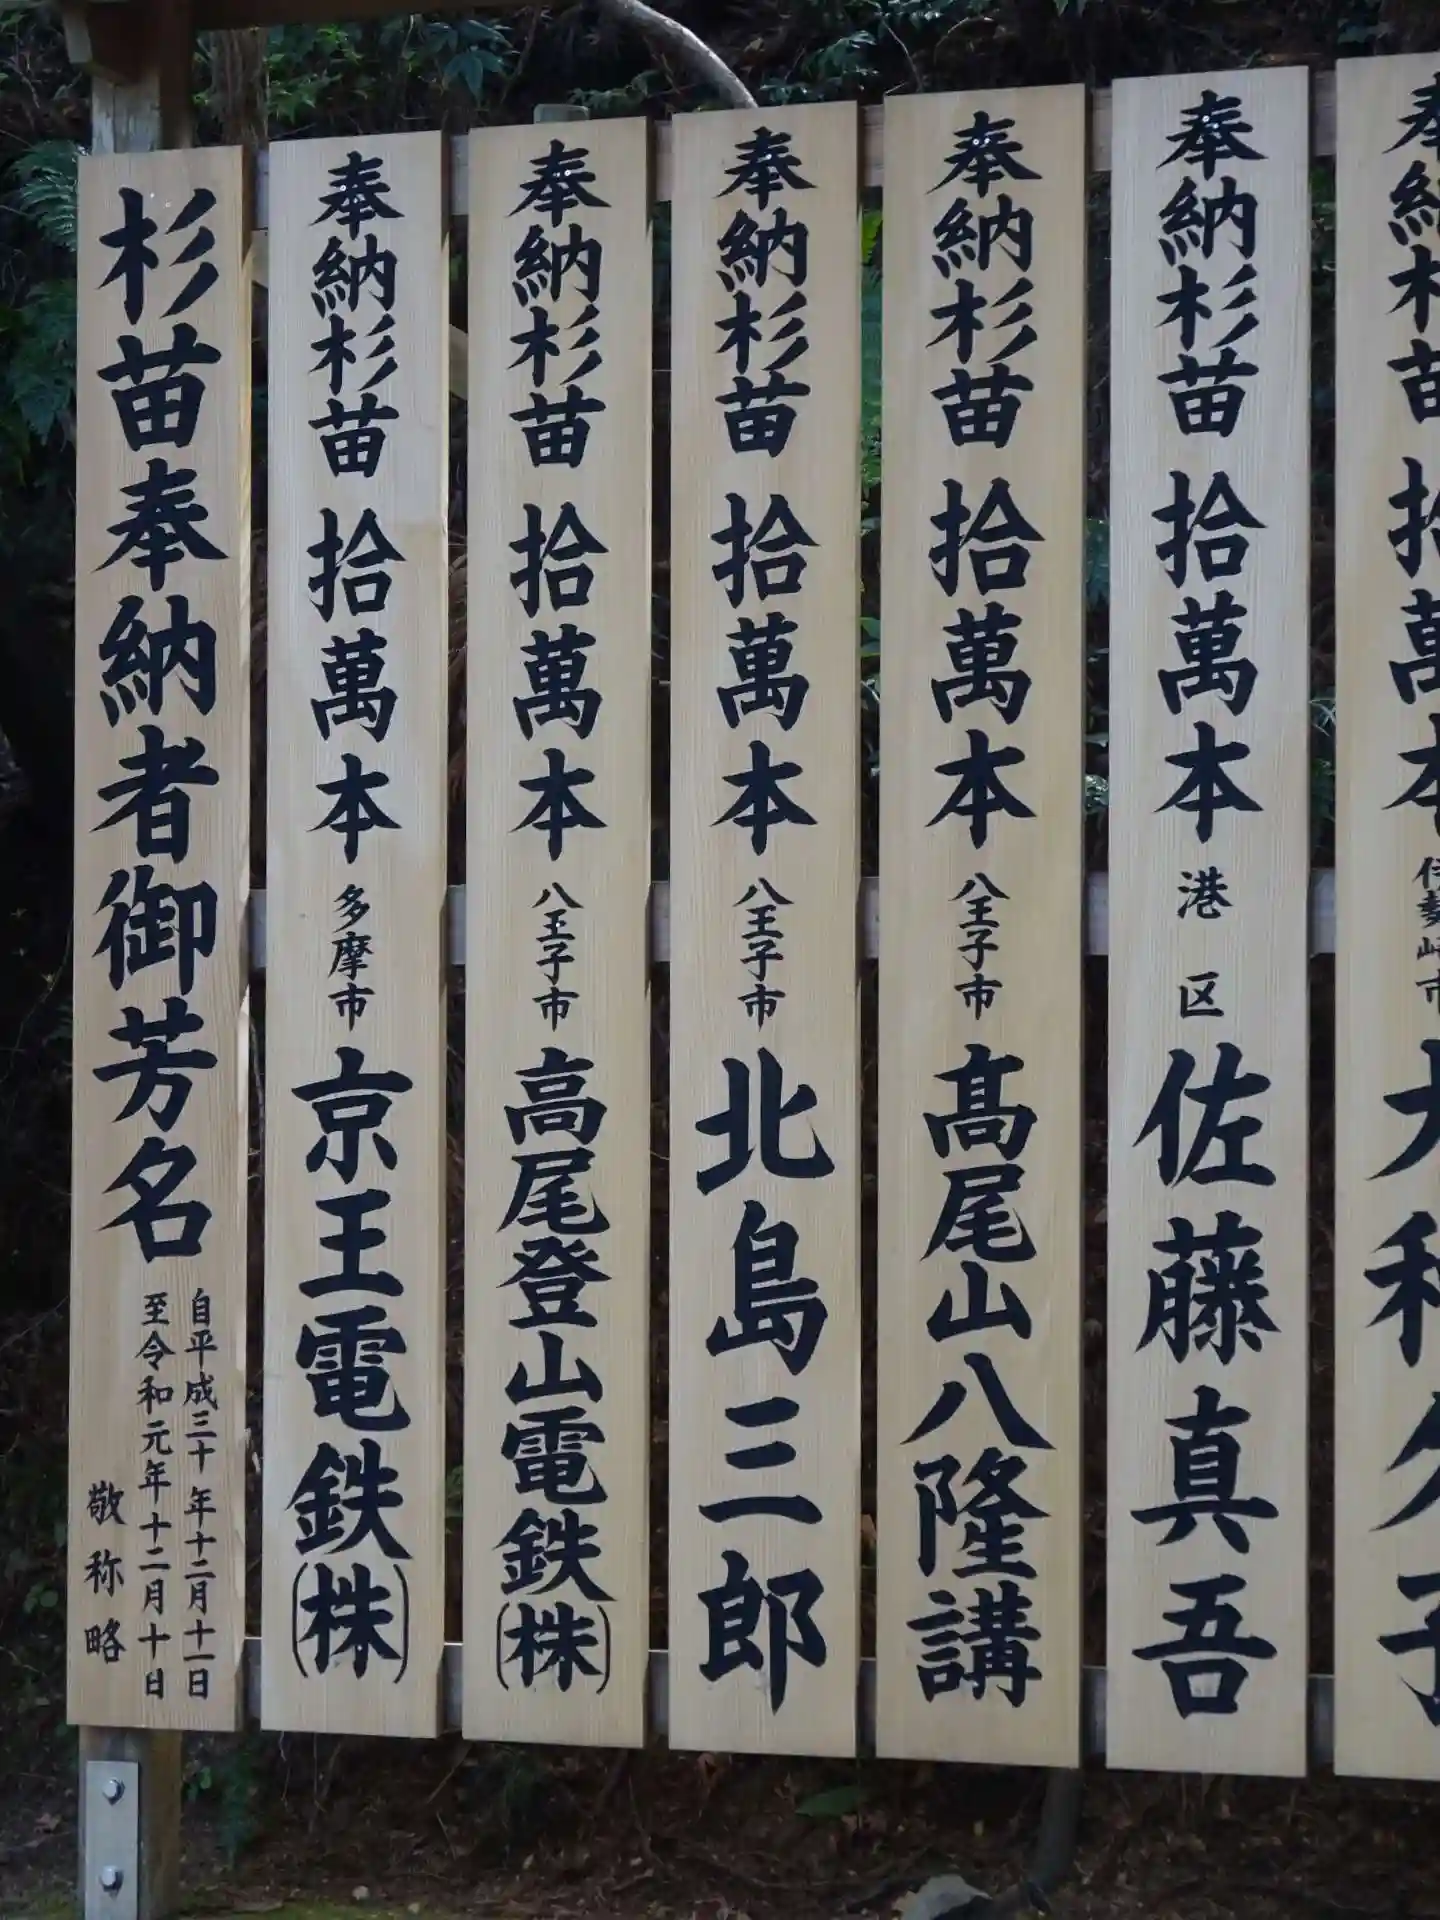 杉苗奉納者御芳名
自平成三十年十二月十一日
至令和元年十二月十日
敬称略
奉納杉苗 拾萬本 多摩市 京王電鉄(株)
奉納杉苗 拾萬本 八王子市 高尾登山電鉄(株)
奉納杉苗 拾萬本 八王子市 北島三郎
奉納杉苗 拾萬本 八王子市 髙尾山八隆講
奉納杉苗 拾萬本 港区 佐藤真吾
奉納杉苗 拾萬本 伊勢崎市